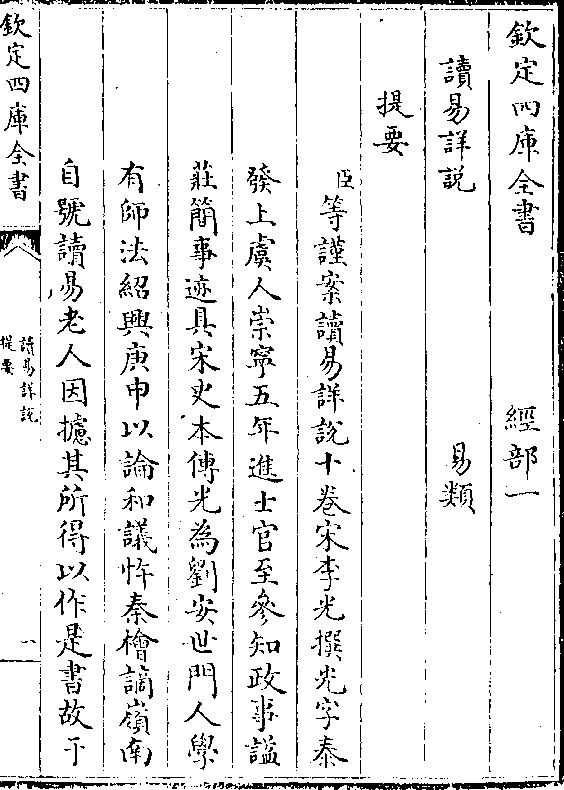 欽定四庫全書　經部一
讀易詳説　易類
提要
臣等謹案讀易詳説十卷宋李光撰光字泰
發上虞人崇寧五年進士官至參知政事謚
莊簡事迹具宋史本傳光為劉安世門人學
有師法紹興庚申以論和議忤秦檜謫嶺南
自號讀易老人因攄其所得以作是書故于
欽定四庫全書
讀易詳説
提要
一